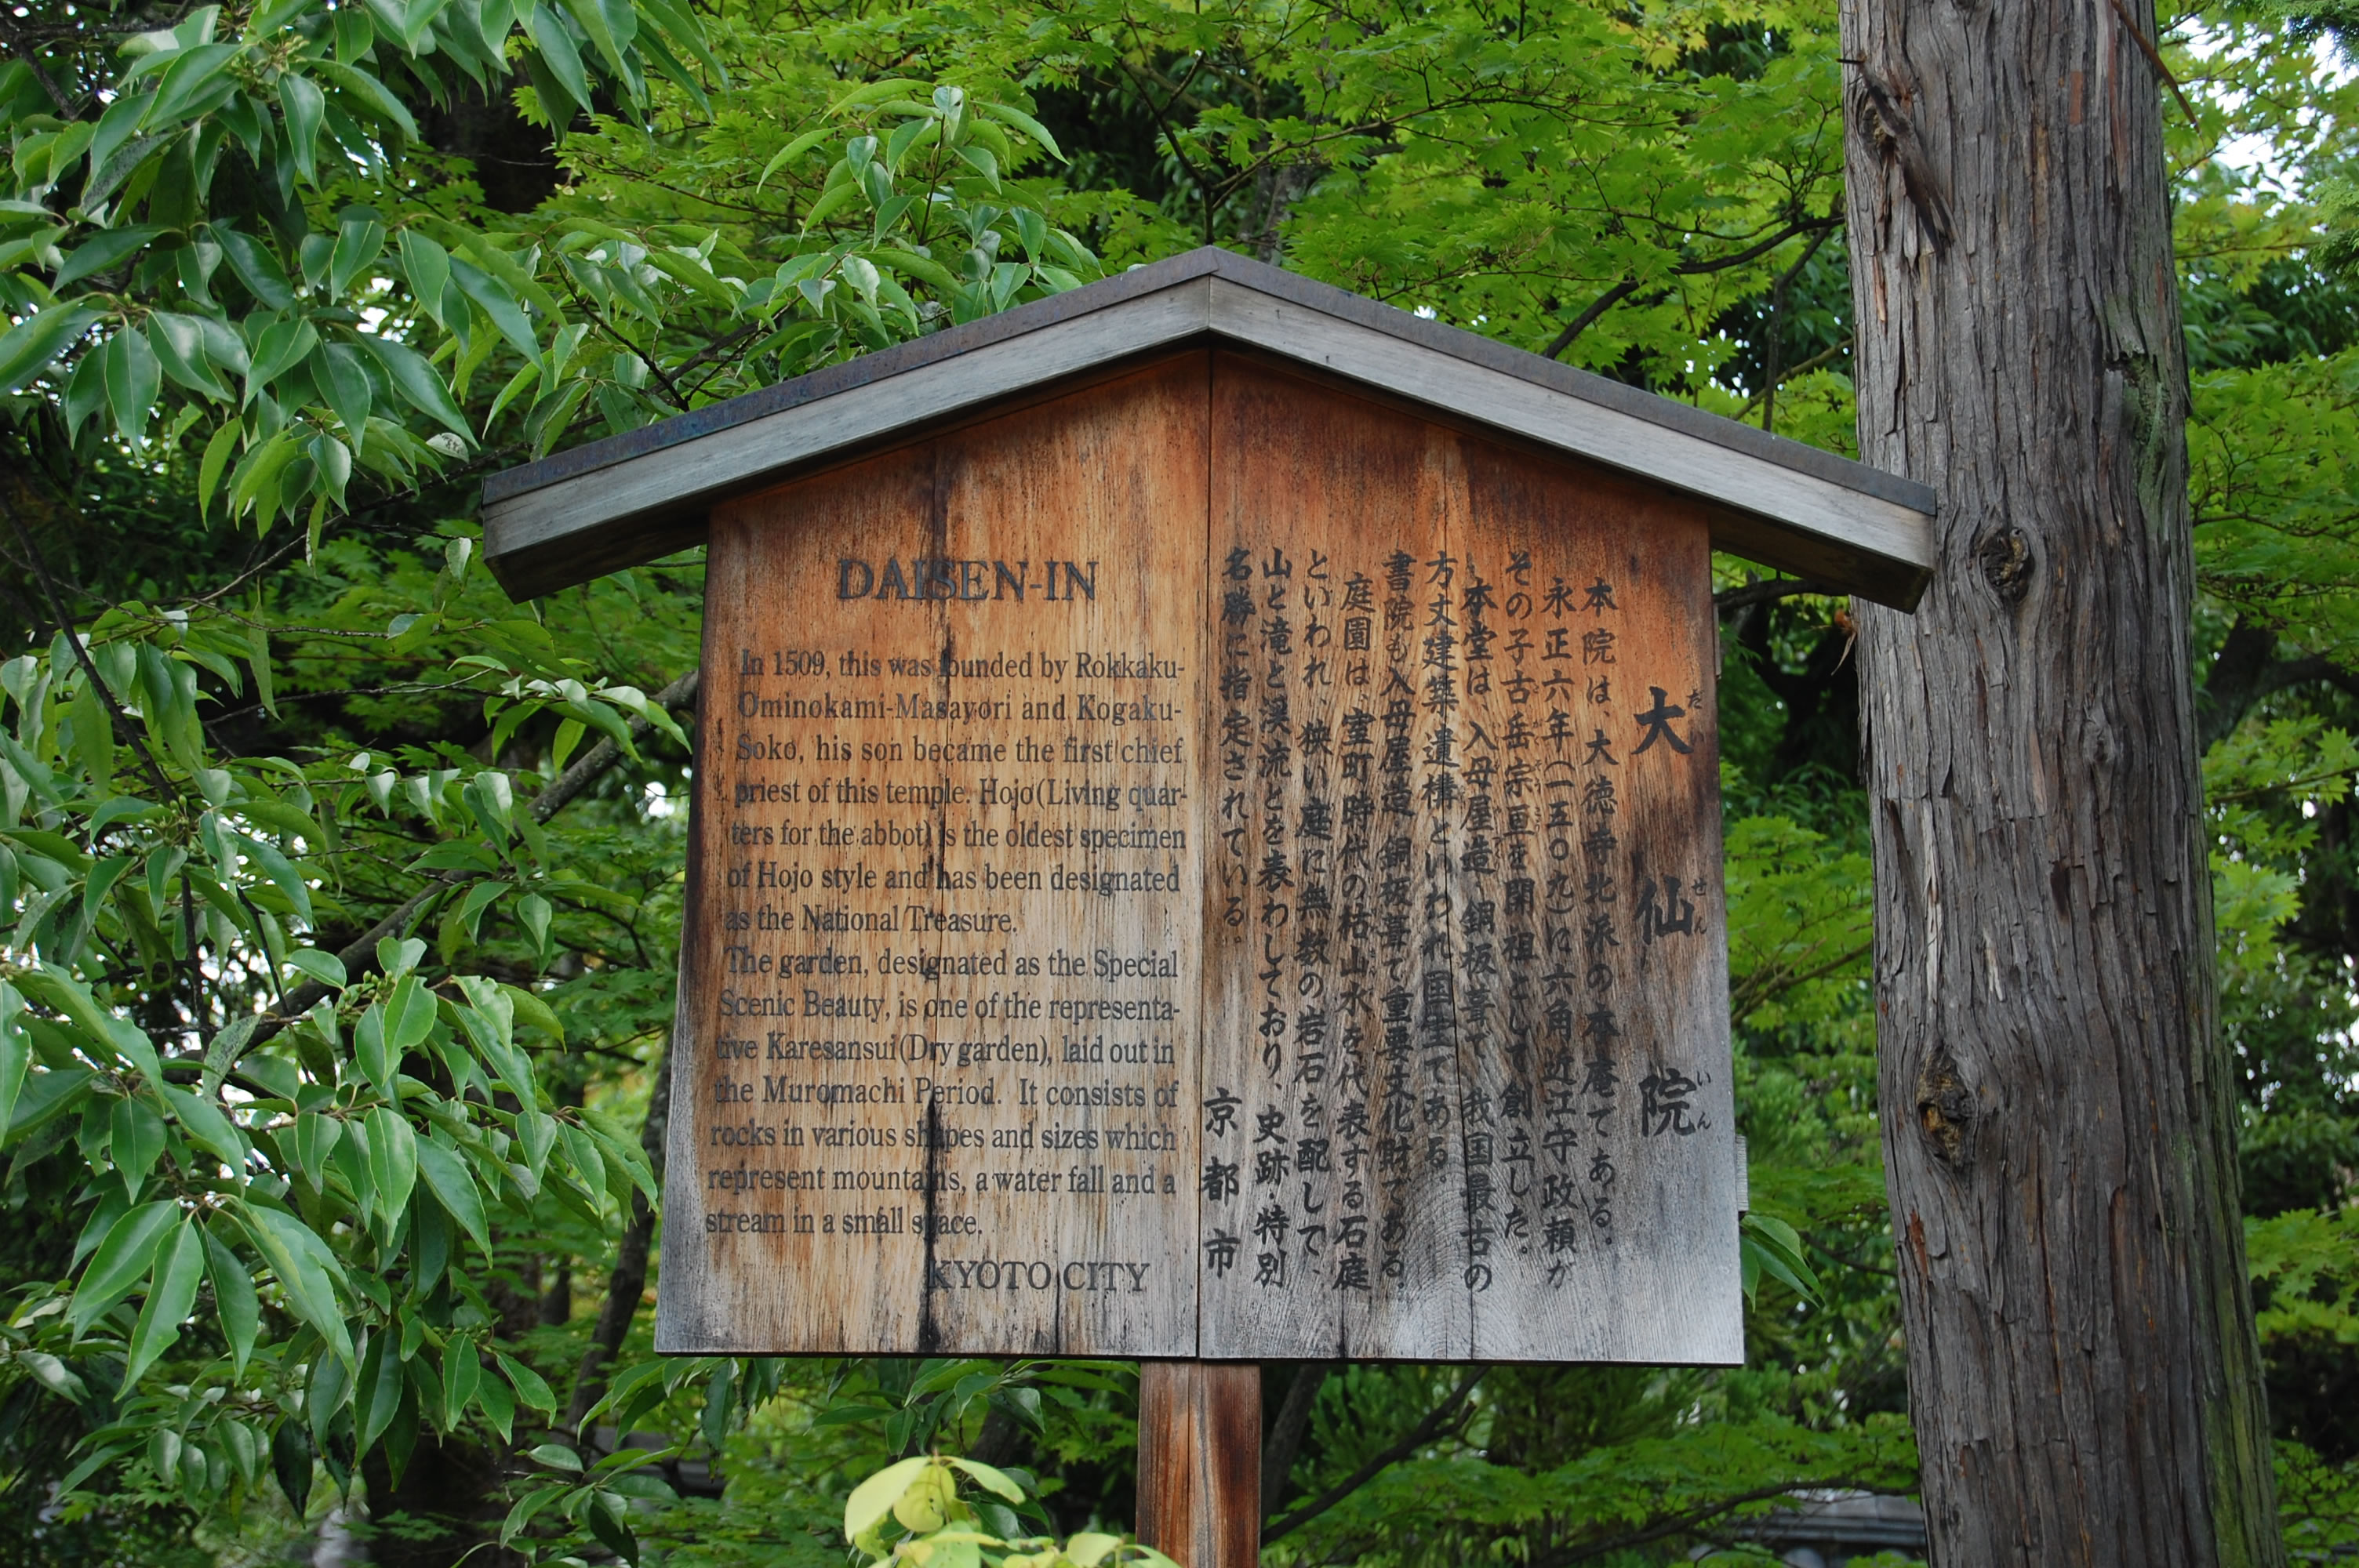 DAISEN-IN
In 1509, this was founded by Rokkaku-
Ominokami-Masayori and Kogaku-
Soko, his son became the first chief
priest of this temple. Hojo(Living quar-
ters for the abbot) is the oldest specimen
of Hojo style and has been designated
as the National Treasure.
The garden, designated as the Special
Scenic Beauty, is one of the representa-
tive Karesansui(Dry garden), laid out in
the Muromachi Period. It consists of
rocks in various shapes and sizes which
represent mountains, a water fall and a
stream in a small space.
KYOTO CITY
大仙院
だいせんいん
本院は、大徳寺北派の本庵である。
永正六年(一五〇九)に六角近江守政頼が
その子古岳宗亘を開祖として創立した。
本堂は、入母屋造、銅板葺で、我国最古の
方丈建築遺構といわれ国宝である。
書院も入母屋造、銅板葺で重要文化財である。
庭園は、室町時代の枯山水を代表する石庭
といわれ、狭い庭に無数の岩石を配して、
山と滝と渓流とを表わしており、史跡・特別
名勝に指定されている。
京都市